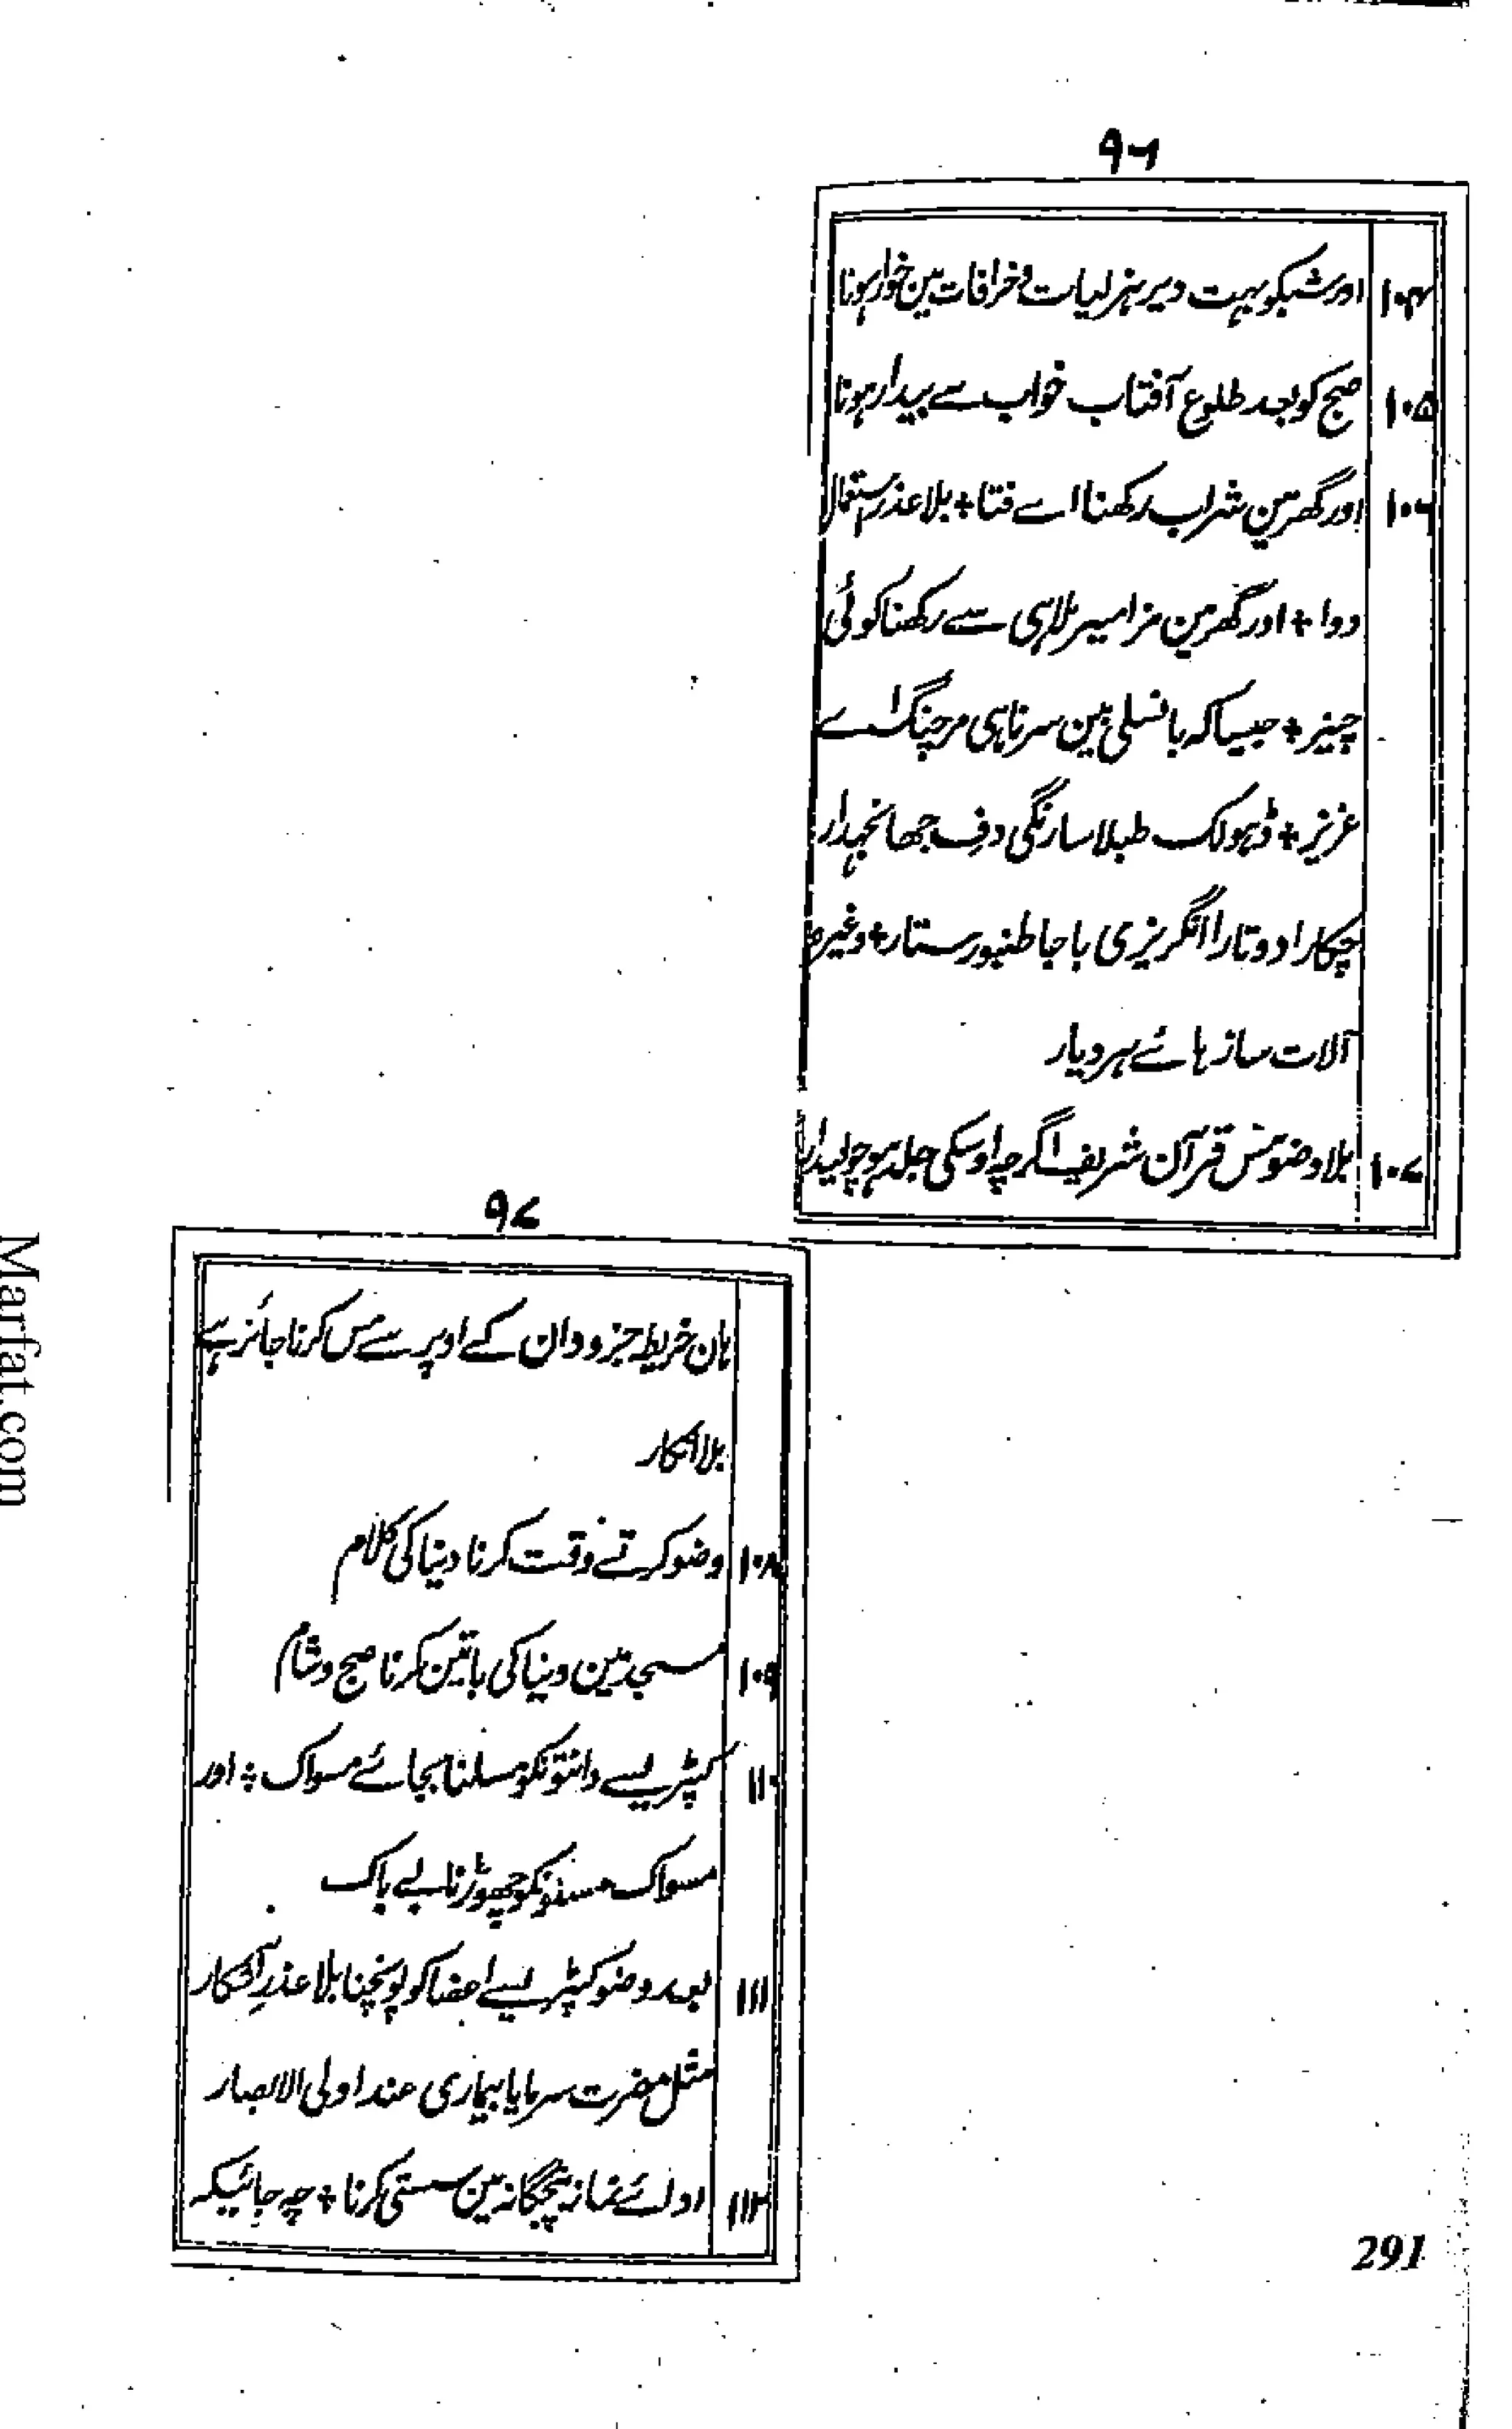 ۹۶
۱۰۴ اور شبکو بہت دیر ہزلیات و خرافات مین خوار ہونا
۱۰۵ صبح کو بعد طلوع آفتاب خواب سے بیدار ہونا
۱۰۶ اور گھر مین شراب رکھنا اے فتا + بلا عذر استعمال
دوا + اور گھر مین مزامیر ملاہی سے رکھنا کوئی
چیز + جیسا کہ بانسلی بین سرناہی مرچنگ اے
عزیز + ڈہولک طبلا سارنگی دف جھانجہدار
چکارا دوتارا انگریزی باجا طنبور ستار + وغیرہ
آلات سازہائے ہر دیار
۱۰۷ بلا وضو مس قرآن شریف اگرچہ اوسکی جلد ہو چولیدار
۹۷
ہان خریطہ جزودان کے اوپر سے مس کرنا جائز ہے
بلا انکار
۱۰۸ وضو کرتے وقت کرنا دنیا کی کلام
۱۰۹ مسجد مین دنیا کی باتین کرنا صبح و شام
۱۱۰ کپڑیسے دانتونکو مسلنا بجائے مسواک + اور
مسواک مسنونکو چھوڑنا بے باک
۱۱۱ بعد وضو کپڑیسے اعضا کو پونچنا بلا عذر آشکار
مثل مضرت سرما یا بیماری عند اولی الابصار
۱۱۲ ادائے نماز پنجگانہ مین سستی کرنا + چہ جائیکہ
291
Marfat.com